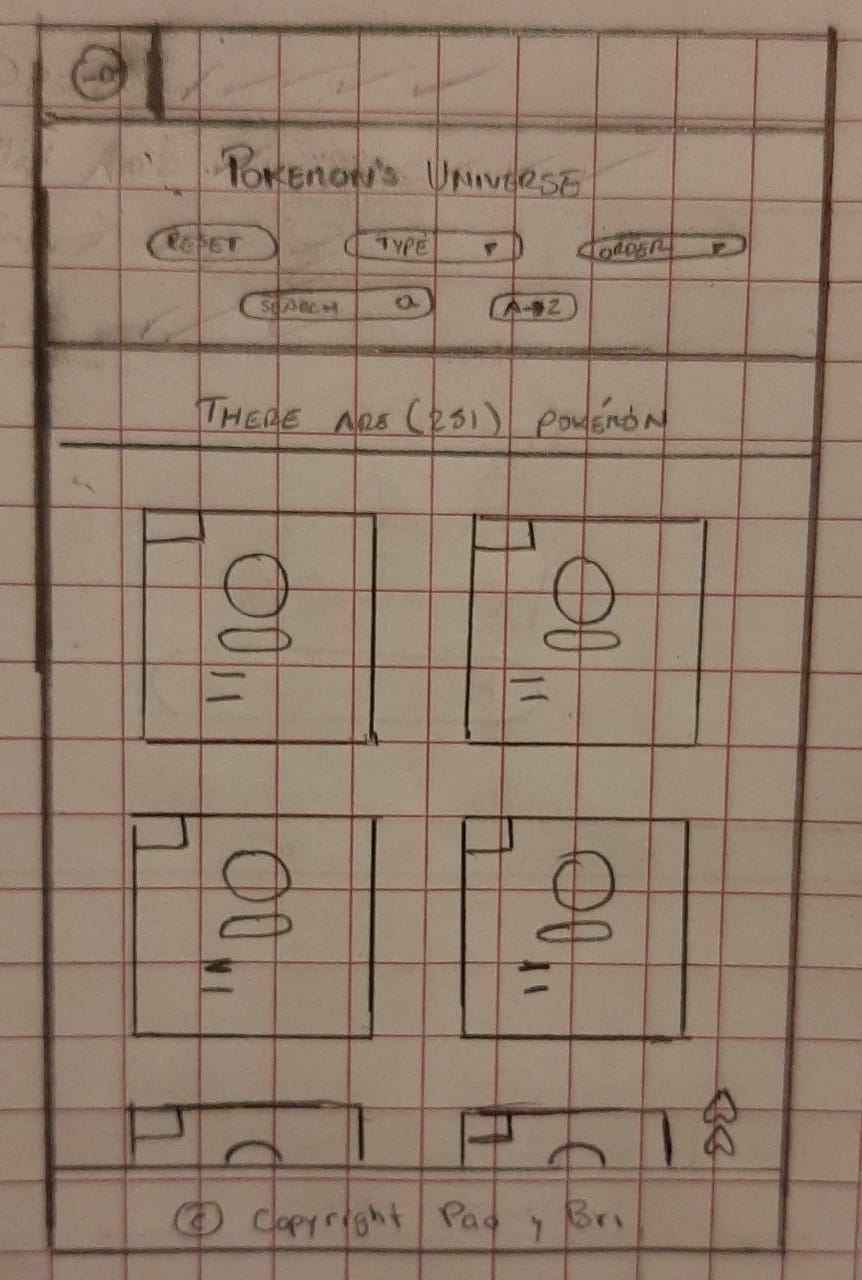 POKEMON'S UNIVERSE
RESET TYPE ORDER
SEARCH A→Z
THERE ARE (251) POKÉMÓN
© Copyright Pao y Bri